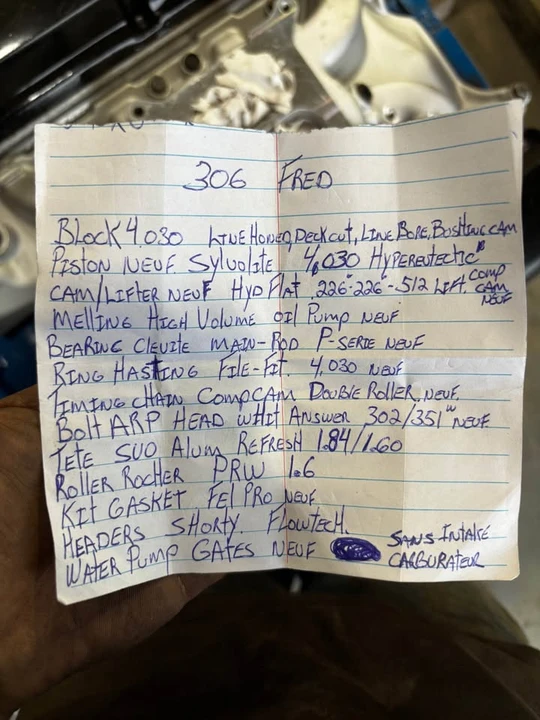 306 FRED
BLOCK 4.030 LINE HONED, DECK CUT, LINE BORE, BOSHING CAM
PISTON NEUF SYLVOLITE 4,030 HYPEREUTECTIC
CAM/LIFTER NEUF HYD FLAT .226-226-.512 LIFT. COMP CAM NEUF
MELLING HIGH VOLUME OIL PUMP NEUF
BEARING CLEVITE MAIN-ROD P-SERIE NEUF
RING HASTING FILE-FIT. 4,030 NEUF
TIMING CHAIN COMPCAM DOUBLE ROLLER NEUF
BOLT ARP HEAD WHIT ANSWER 302/351W NEUF
TETE SVO ALUM REFRESH 1.84/1.60
ROLLER ROCHER PRW 1.6
KIT GASKET FEL PRO NEUF
HEADERS SHORTY. FLOWTECH
WATER PUMP GATES NEUF
SANS INTAKE
CARBURATEUR